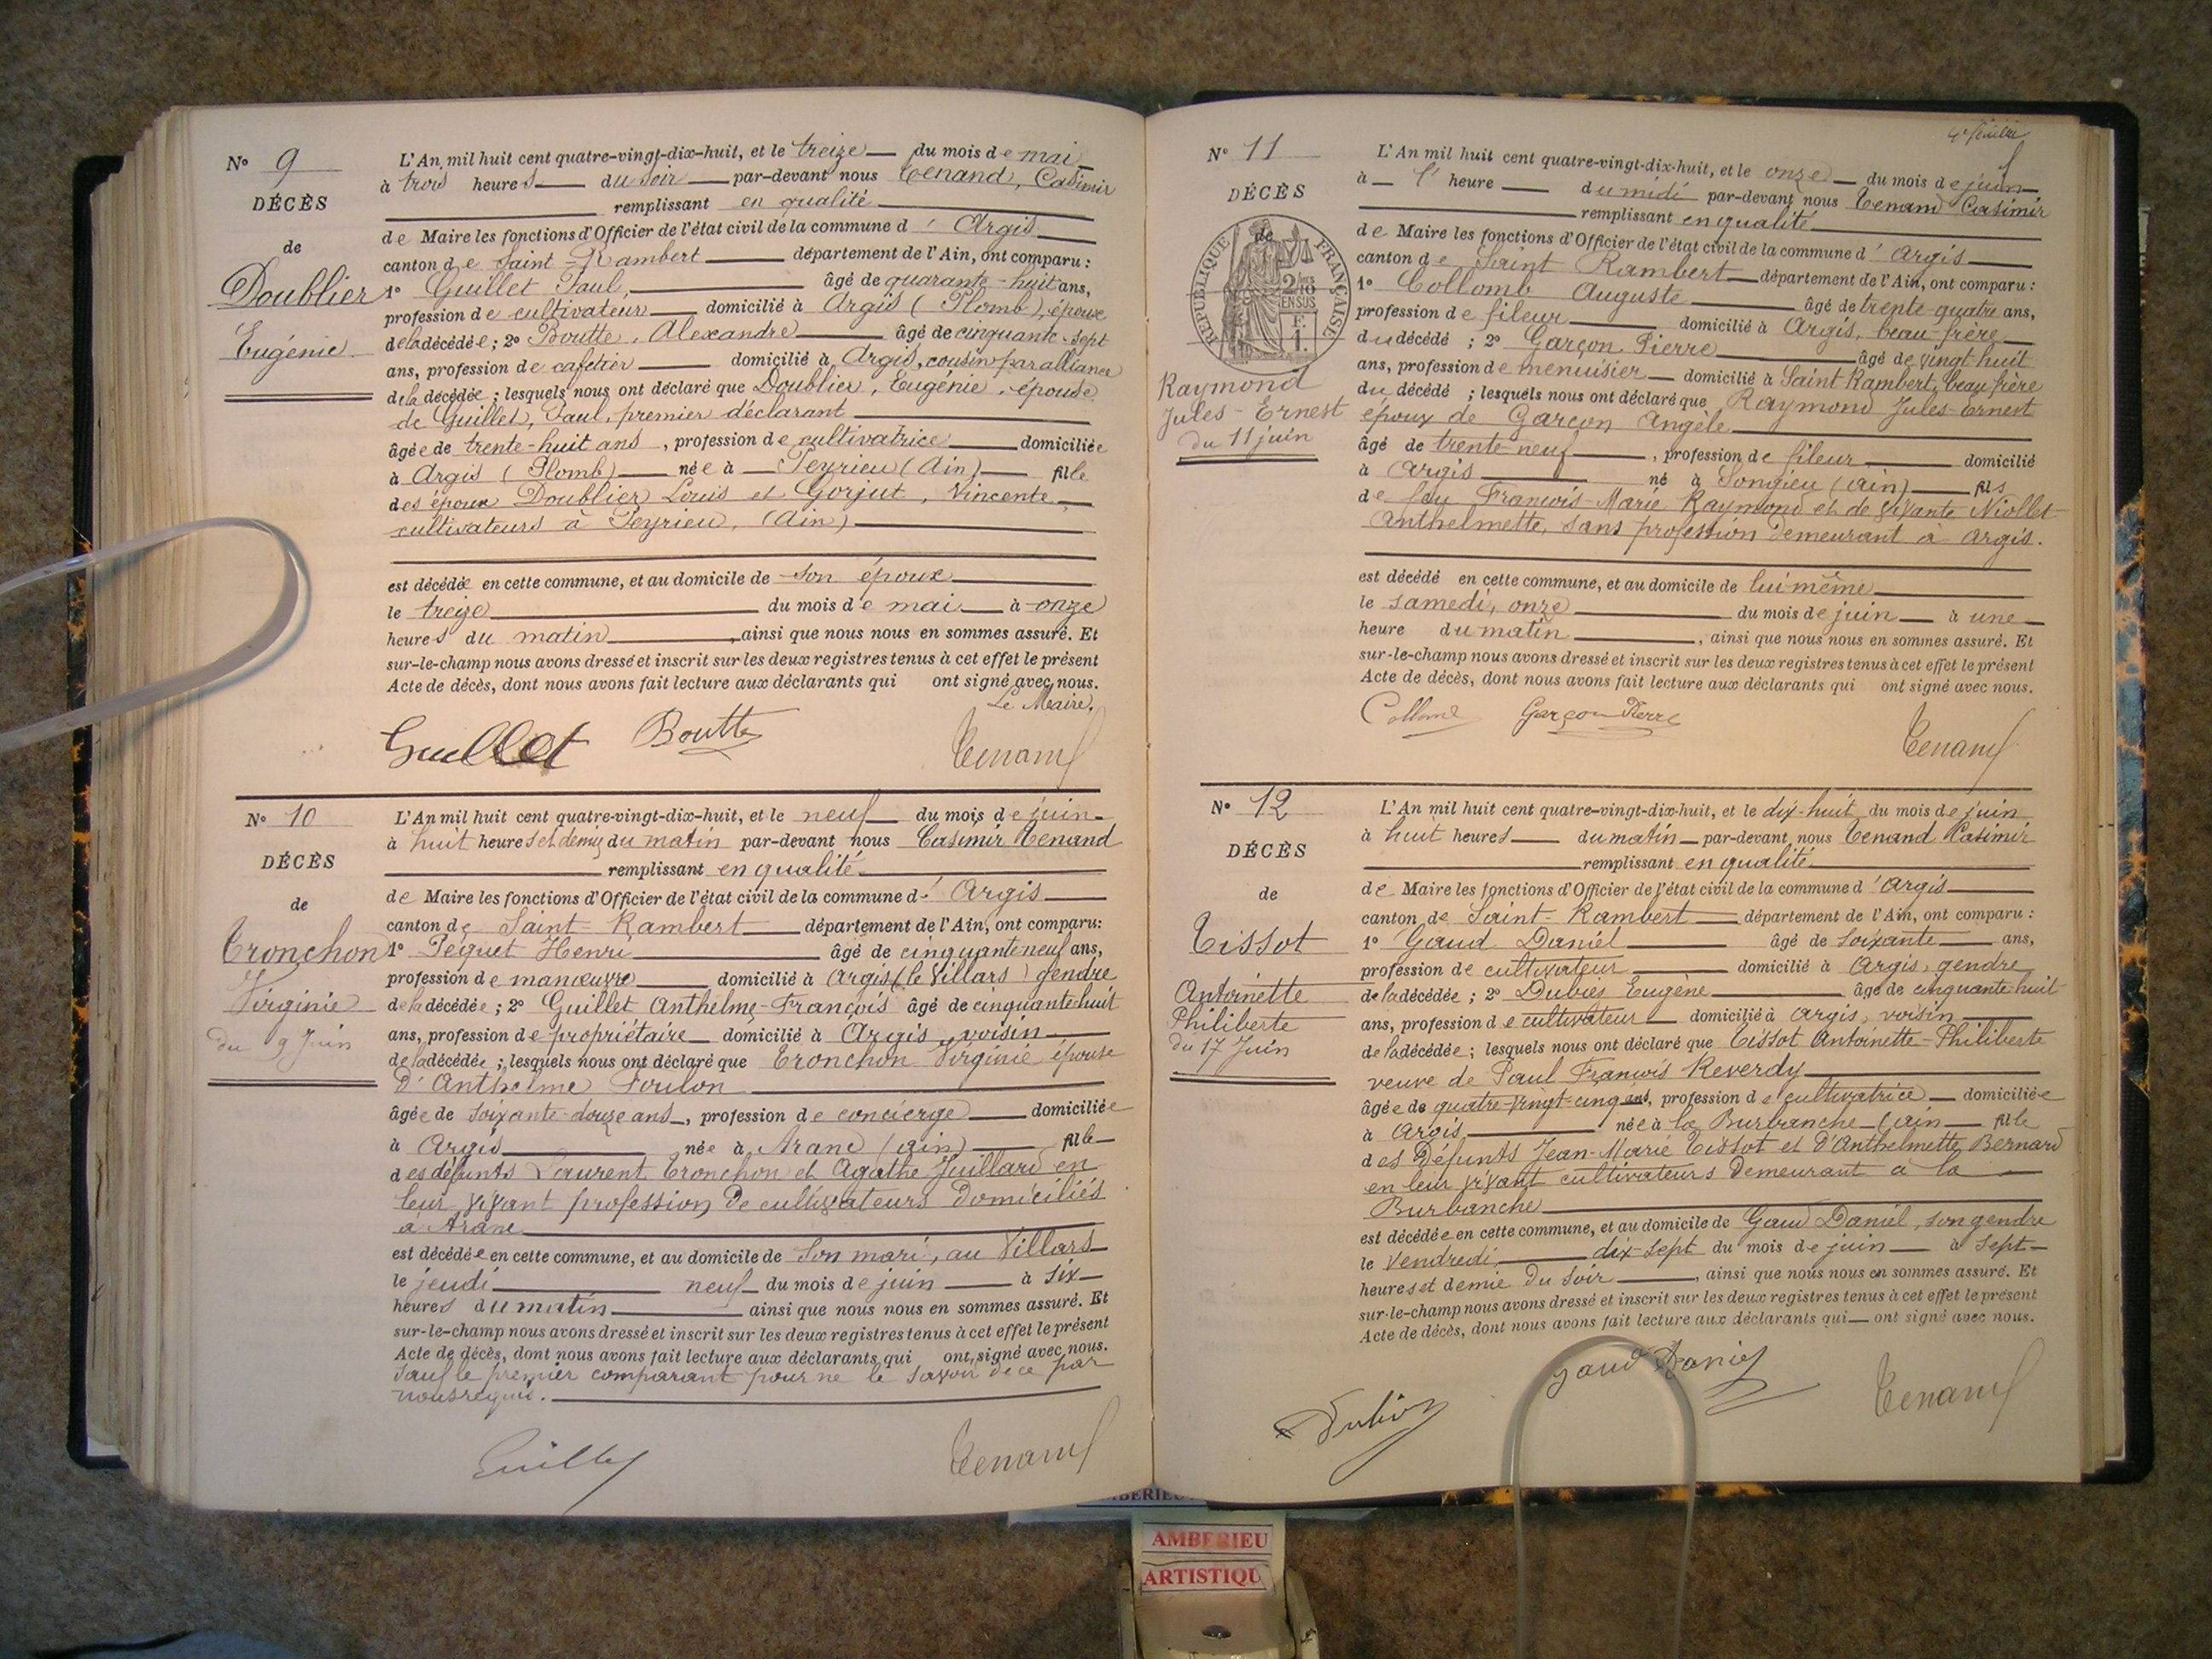 N° 9
DÉCÈS
de
Doublier
Eugénie
L'An mil huit cent quatre-vingt-dix-huit, et le treize du mois de mai
à trois heures du soir par-devant nous Tenand, Casimir
remplissant en qualité
de Maire les fonctions d'Officier de l'état civil de la commune d' Argis
canton de Saint-Rambert département de l'Ain, ont comparu :
1° Guillet Paul, âgé de quarante-huit ans,
profession de cultivateur domicilié à Argis (Plomb), époux
de la décédée ; 2° Boutte, Alexandre âgé de cinquante-sept
ans, profession de cafetier domicilié à Argis, cousin par alliance
de la décédée ; lesquels nous ont déclaré que Doublier, Eugénie, épouse
de Guillet, Paul, premier déclarant
âgée de trente-huit ans, profession de cultivatrice domiciliée
à Argis (Plomb) née à Peyrieu (Ain) fille
des époux Doublier Louis et Gorjut, Vincente
cultivateurs à Peyrieu, (Ain)
est décédée en cette commune, et au domicile de son époux
le treize du mois de mai à onze
heures du matin, ainsi que nous nous en sommes assuré. Et
sur-le-champ nous avons dressé et inscrit sur les deux registres tenus à cet effet le présent
Acte de décès, dont nous avons fait lecture aux déclarants qui ont signé avec nous.
Le Maire,
Guillet Boutte Tenand
N° 10
DÉCÈS
de
Tronchon
Virginie
du 9 Juin
L'An mil huit cent quatre-vingt-dix-huit, et le neuf du mois de juin
à huit heures et demie du matin par-devant nous Casimir Tenand
remplissant en qualité
de Maire les fonctions d'Officier de l'état civil de la commune d' Argis
canton de Saint-Rambert département de l'Ain, ont comparu :
1° Péquet Henri âgé de cinquante neuf ans,
profession de manœuvre domicilié à Argis (le Villars) gendre
de la décédée ; 2° Guillet Anthelme-François âgé de cinquante huit
ans, profession de propriétaire domicilié à Argis, voisin
de la décédée ; lesquels nous ont déclaré que Tronchon Virginie épouse
D'Anthelme Foulon
âgée de soixante-douze ans, profession de concierge domiciliée
à Argis née à Aranc (ain) fille
des défunts Laurent Tronchon et Agathe Juillard en
leur vivant profession de cultivateurs domiciliés
à Aranc
est décédée en cette commune, et au domicile de son mari, au Villars
le jeudi neuf du mois de juin à six
heures du matin ainsi que nous nous en sommes assuré. Et
sur-le-champ nous avons dressé et inscrit sur les deux registres tenus à cet effet le présent
Acte de décès, dont nous avons fait lecture aux déclarants qui ont signé avec nous.
Sauf le premier comparant pour ne le savoir de ce par
nous requis.
Guillet Tenand
4e feuillet
N° 11
DÉCÈS
de
RÉPUBLIQUE FRANÇAISE
2/10 EN SUS
Raymond
Jules-Ernest
du 11 juin
L'An mil huit cent quatre-vingt-dix-huit, et le onze du mois de juin
à l' heure du midi par-devant nous Tenand Casimir
remplissant en qualité
de Maire les fonctions d'Officier de l'état civil de la commune d' Argis
canton de Saint Rambert département de l'Ain, ont comparu :
1° Collomb Auguste âgé de trente-quatre ans,
profession de fileur domicilié à Argis, beau-frère
du décédé ; 2° Garçon Pierre âgé de vingt huit
ans, profession de menuisier domicilié à Saint Rambert, beau frère
du décédé ; lesquels nous ont déclaré que Raymond Jules-Ernest
époux de Garçon Angèle
âgé de trente-neuf, profession de fileur domicilié
à Argis né à Songieu (ain) fils
de feu François-Marie Raymond et de vivante Niollet
Anthelmette, sans profession demeurant à Argis.
est décédé en cette commune, et au domicile de lui-même
le samedi, onze du mois de juin à une
heure du matin, ainsi que nous nous en sommes assuré. Et
sur-le-champ nous avons dressé et inscrit sur les deux registres tenus à cet effet le présent
Acte de décès, dont nous avons fait lecture aux déclarants qui ont signé avec nous.
Collomb Garçon Pierre
Tenand
N° 12
DÉCÈS
de
Tissot
Antoinette
Philiberte
du 17 Juin
L'An mil huit cent quatre-vingt-dix-huit, et le dix-huit du mois de juin
à huit heures du matin par-devant nous Tenand Casimir
remplissant en qualité
de Maire les fonctions d'Officier de l'état civil de la commune d' Argis
canton de Saint-Rambert département de l'Ain, ont comparu :
1° Gaud Daniel âgé de soixante ans,
profession de cultivateur domicilié à Argis, gendre
de la décédée ; 2° Eugène âgé de cinquante huit
ans, profession de cultivateur domicilié à Argis, voisin
de la décédée ; lesquels nous ont déclaré que Tissot Antoinette-Philiberte
veuve de Paul François Reverdy
âgée de quatre-vingt-cinq ans, profession de cultivatrice domiciliée
à Argis née à la Burbanche (ain fille
des défunts Jean-Marie Tissot et d'Anthelmette Bernard
en leur vivant cultivateurs demeurant à la
Burbanche
est décédée en cette commune, et au domicile de Gaud Daniel, son gendre
le vendredi, dix-sept du mois de juin à sept
heures et demie du soir, ainsi que nous nous en sommes assuré. Et
sur-le-champ nous avons dressé et inscrit sur les deux registres tenus à cet effet le présent
Acte de décès, dont nous avons fait lecture aux déclarants qui ont signé avec nous.
Gaud Daniel
Tenand
AMBERIEU
AMBERIEU
ARTISTIQU